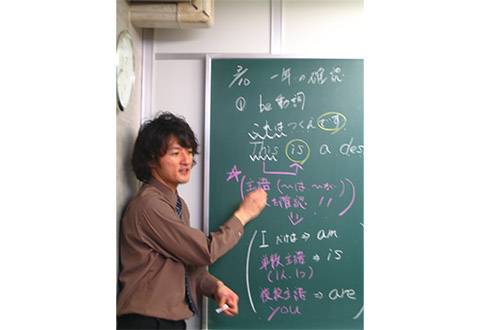 2/10 一年の確認
① be動詞
これはつくえです
This is a des
☆(主語(〜は、〜が)
を確認!!)
I だけは ⇒ am
単数主語 ⇒ is
(1人、1つ)
複数主語 ⇒ are
you